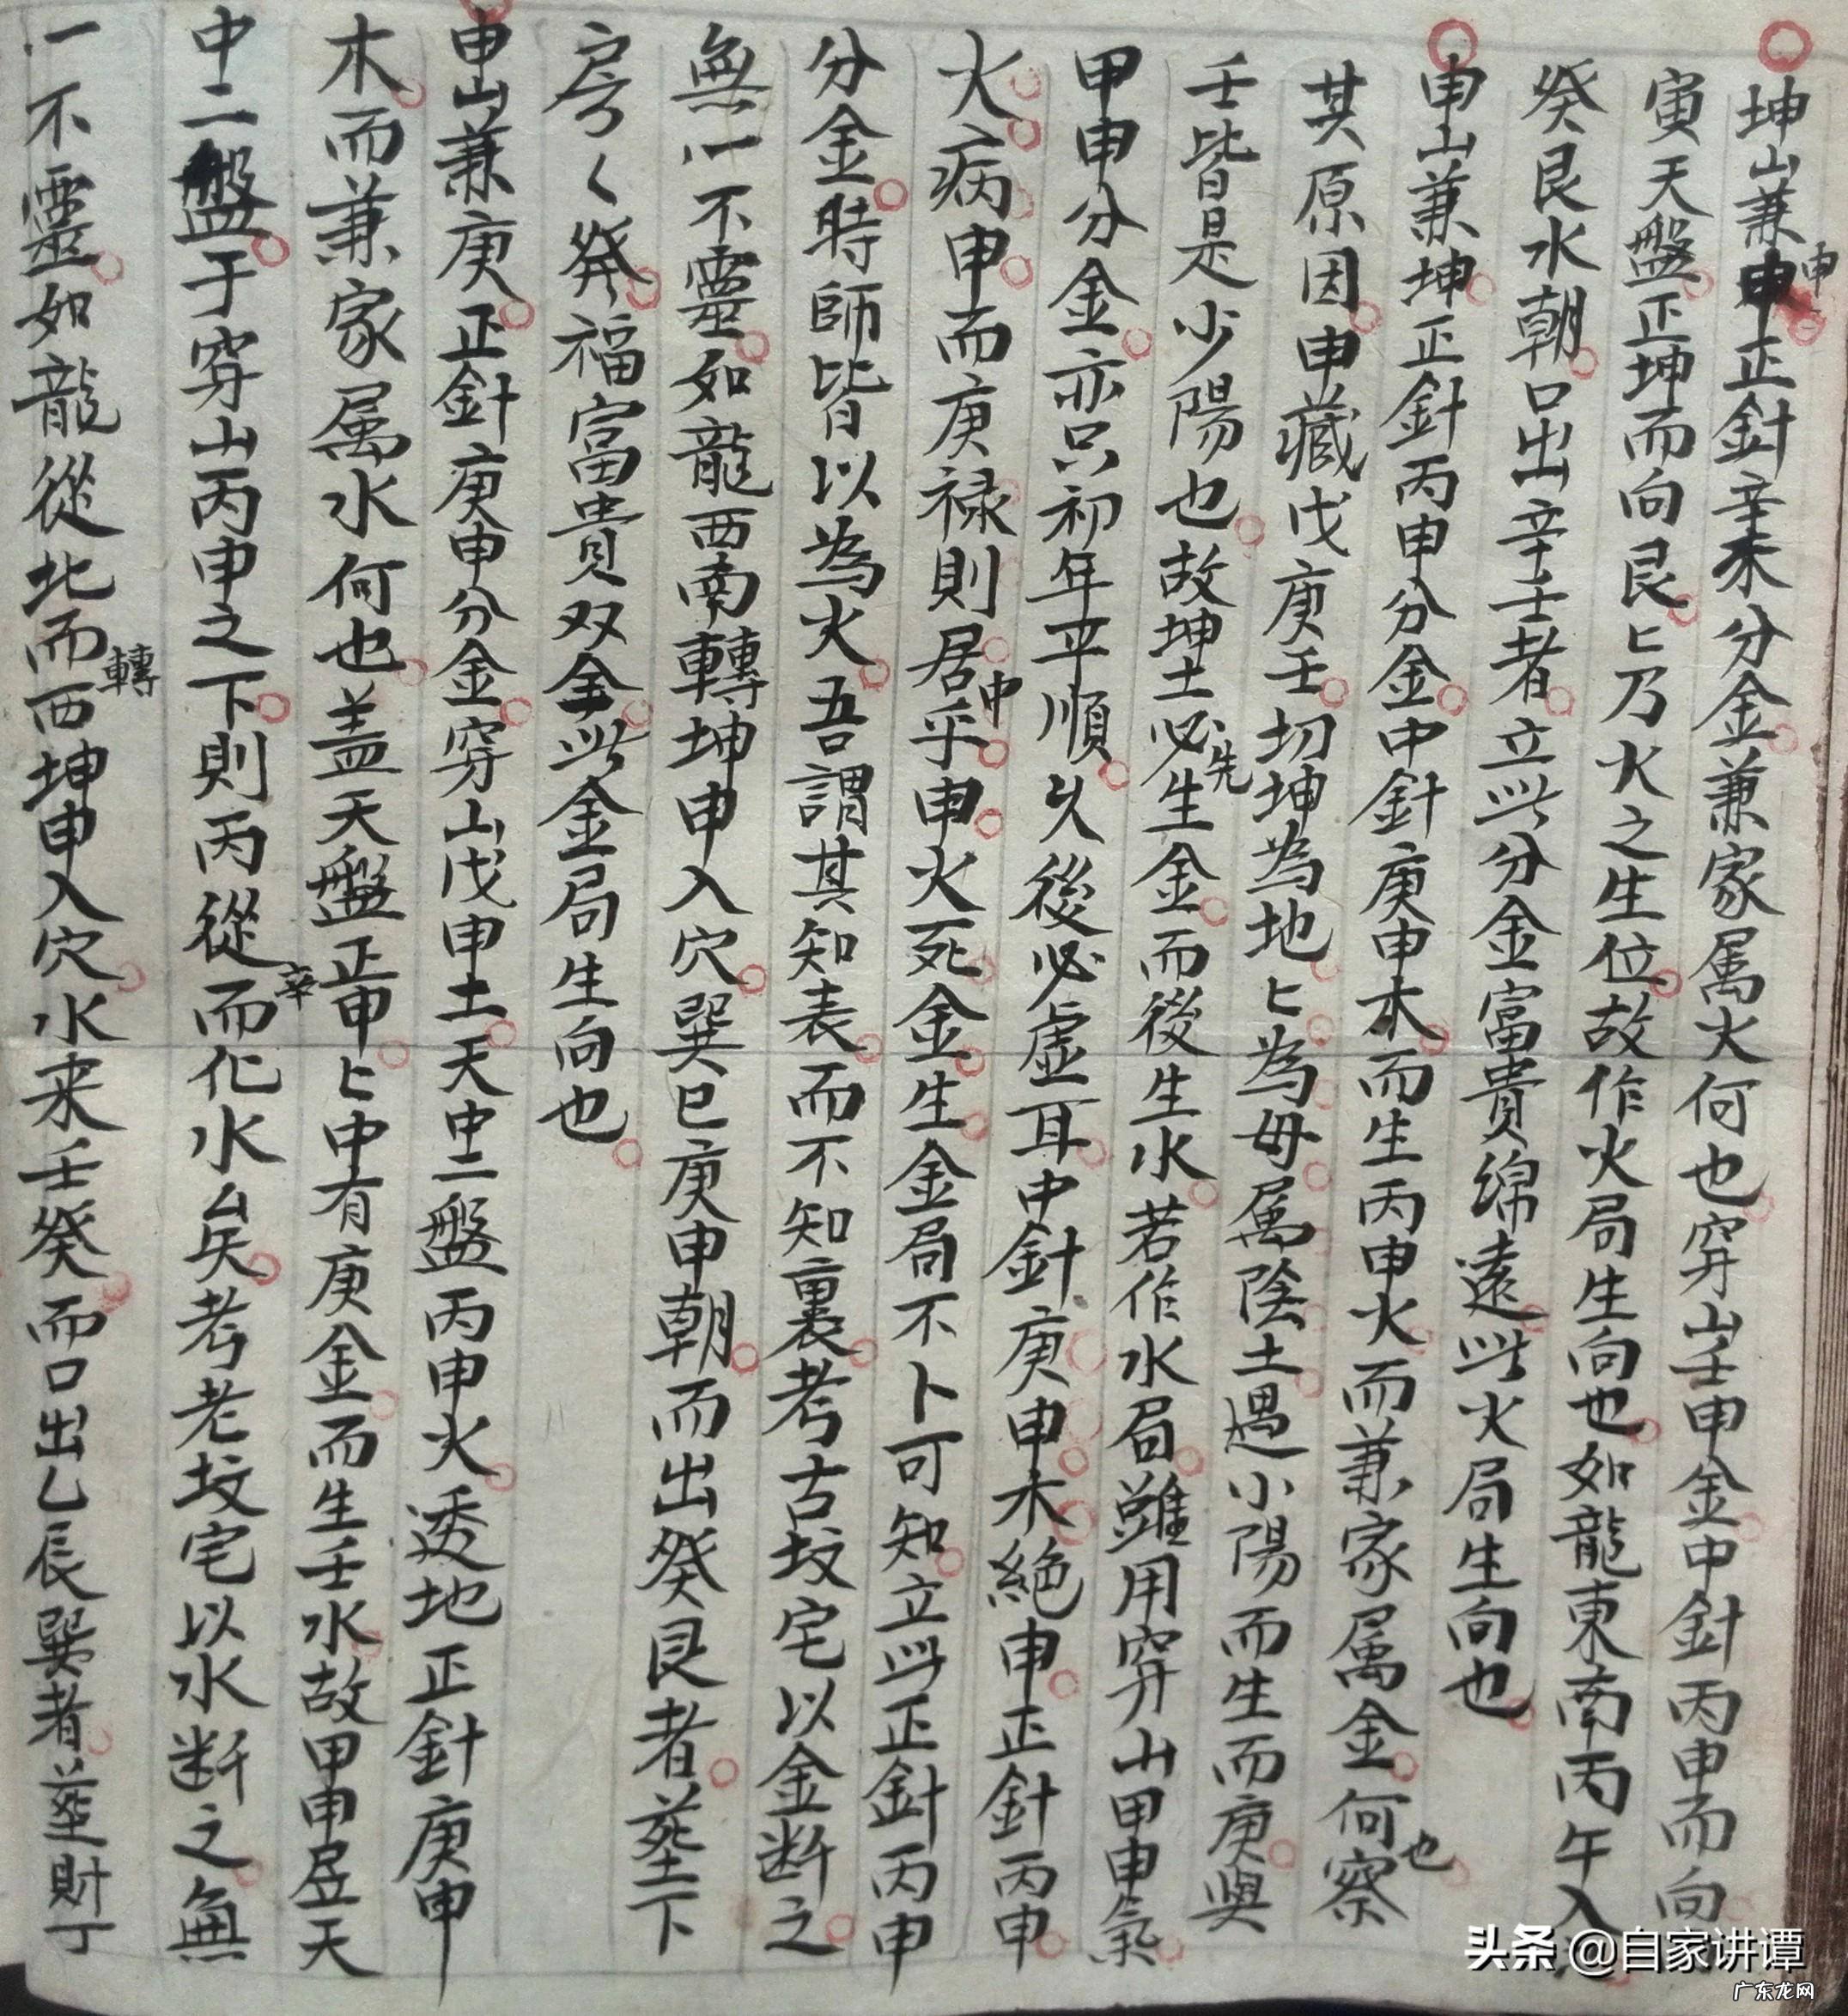 坤山兼申申正針辛未分金兼家属火何也穿山壬申金中針丙申而向
寅天盤正坤而向艮〻乃火之生位故作火局生向也如龍東南丙午入
癸艮水朝口出辛壬者立此分金富貴綿遠此火局生向也
申山兼坤正針丙申分金中針庚申木而生丙申火而兼家属金何也察
其原因申藏戊庚壬切坤為地〻為母属陰土遇小陽而生而庚與
壬皆是少陽也故坤土必先生金而後生水若作水局雖用穿山甲申氣
甲申分金亦只初年平順久後必虛耳中針庚申木絕申正針丙申
火病申而庚禄則居乎申申火死金生金局不卜可知立此正針丙申
分金時師皆以為火吾謂其知表而不知裏考古坟宅以金断之
無一不靈如龍西南轉坤申入穴巽巳庚申朝而出癸艮者塟下
房〻發福富貴双全此金局生向也
申山兼庚正針庚申分金穿山戊申土天中二盤丙申火透地正針庚申
木而兼家属水何也盖天盤正申〻中有庚金而生壬水故甲申居天
中二盤于穿山丙申之下則丙從辛而化水矣考老坟宅以水断之無
一不靈如龍從北而轉西坤申入穴水来壬癸而口出乙辰巽者塟財丁
头条 @自家讲谭
广东龙网